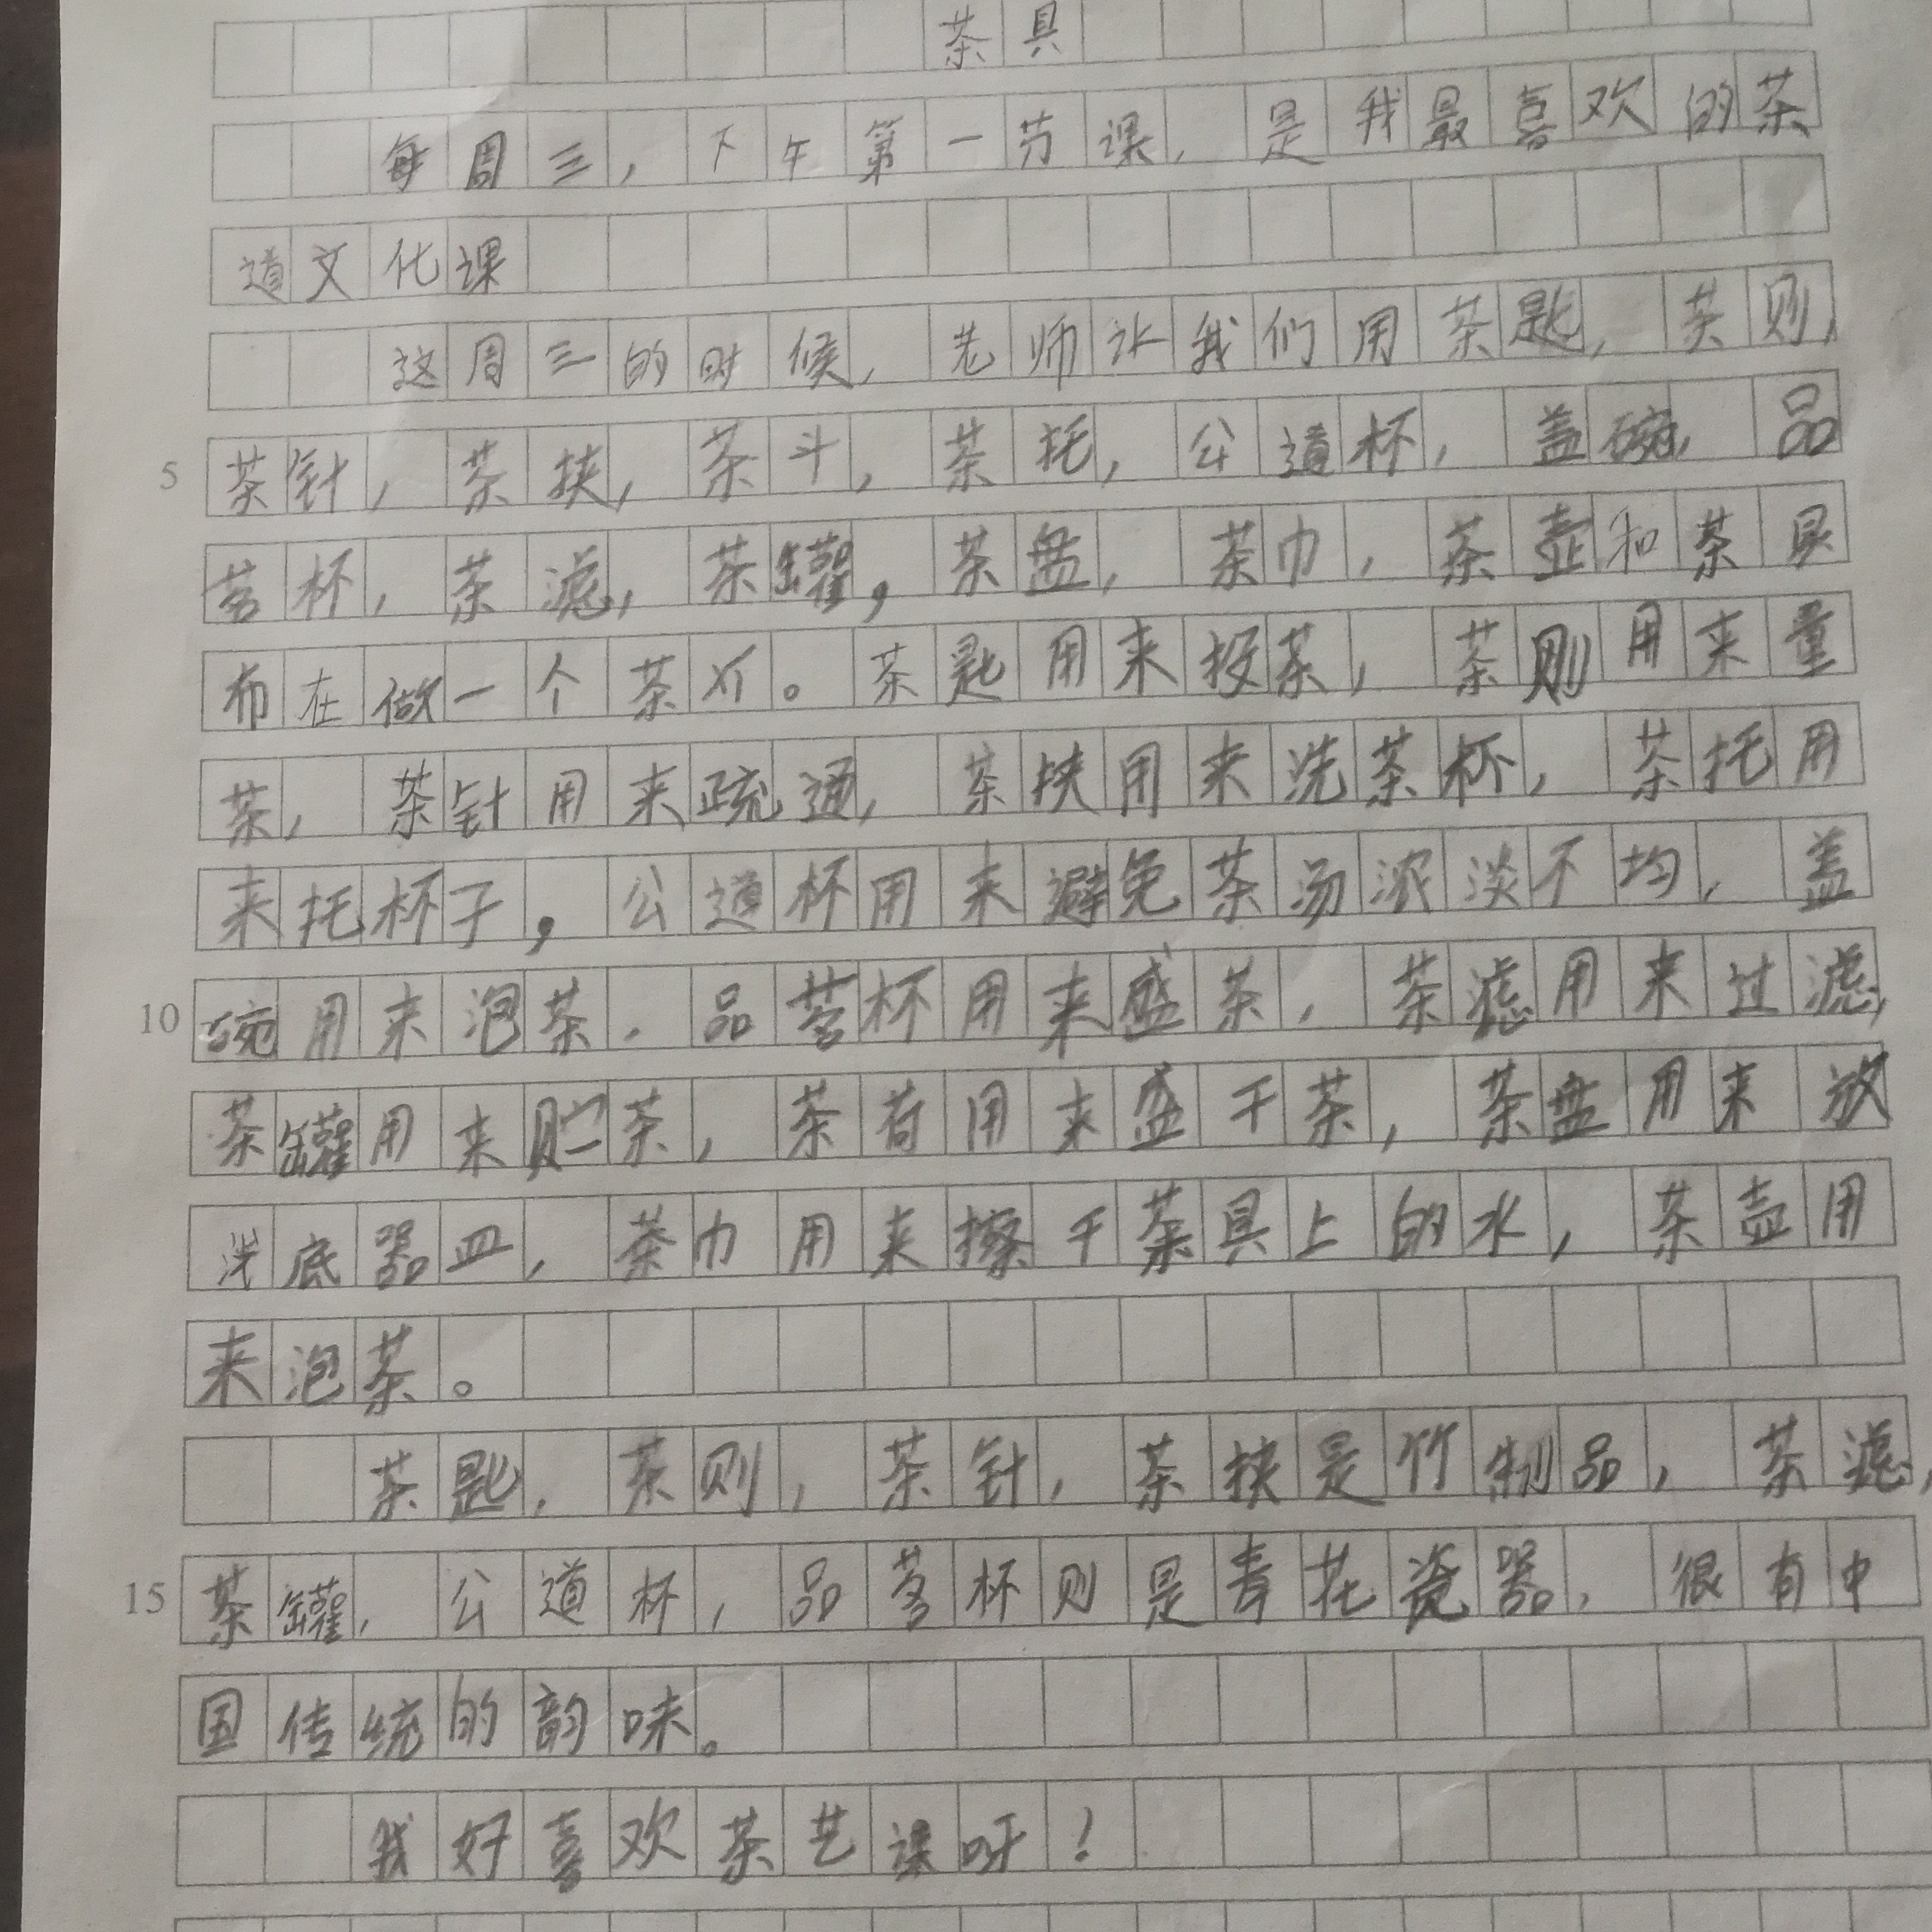 茶具
每周三，下午第一节课，是我最喜欢的茶
道文化课
这周三的时候，老师让我们用茶匙，茶则，
5 茶针，茶挟，茶斗，茶托，公道杯，盖碗，品
茗杯，茶滤，茶罐，茶盘，茶巾，茶壶和茶具
布在做一个茶。茶匙用来投茶，茶则用来量
茶，茶针用来疏通，茶挟用来洗茶杯，茶托用
来托杯子，公道杯用来避免茶汤浓淡不均，盖
10 碗用来泡茶，品茗杯用来盛茶，茶滤用来过滤，
茶罐用来贮茶，茶荷用来盛干茶，茶盘用来放
底器皿，茶巾用来擦干茶具上的水，茶壶用
来泡茶。
茶匙，茶则，茶针，茶挟是竹制品，茶滤，
15 茶罐，公道杯，品茗杯则是青花瓷器，很有中
国传统的韵味。
我好喜欢茶艺课呀！